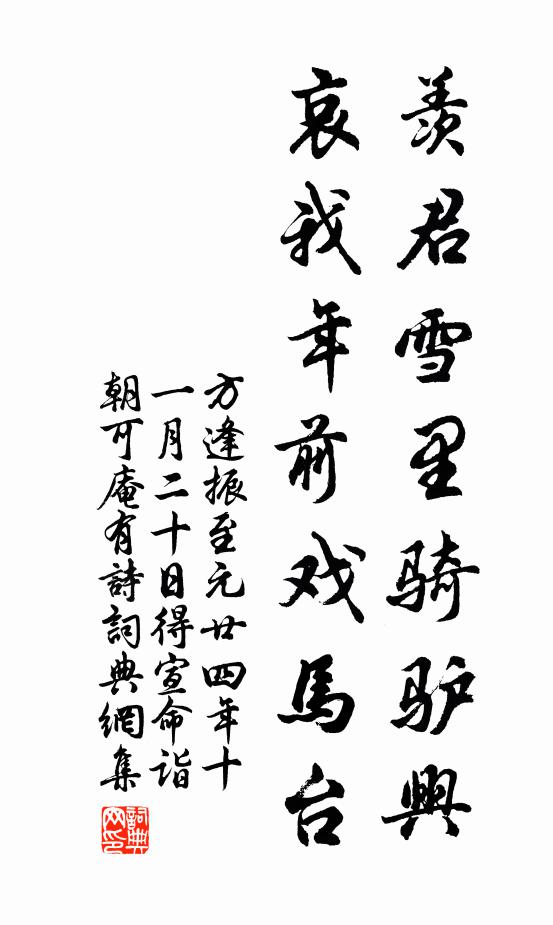 羡君雪里骑驴興
哀我年前戏馬台
方逢振至元廿四年十
一月二十日得宣命詣
朝可庵有詩詞典網集
詞典网印